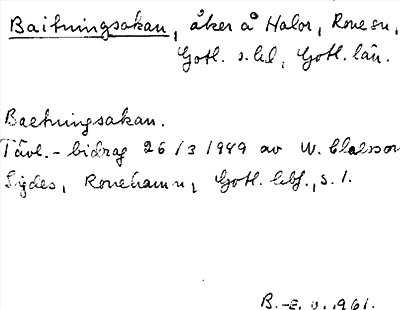 Baitningsåkan, åker å Halor, Rone sn,
Gotl. s. hd, Gotl. län.
Baetningsakan.
Tävl.-bidrag 26/3 1949 av W. Claesson
Sigdes, Ronehamn, Gotl. s. 1.
B.-E. 1961.